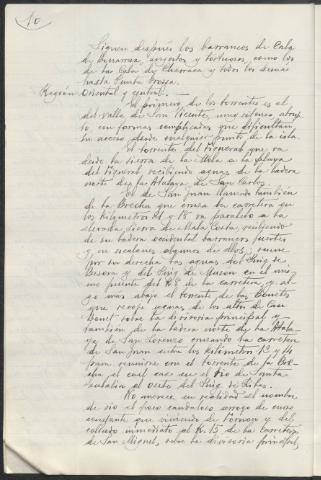 10
Siguen después los barrancos de Cala
de Benarras, angostos y tortuosos, como los
de las Calas de Charraca y todos los demás
hasta Punta Grossa.
Región Oriental y central.-
El primero de los torrentes es el
del valle de San Vicente, muy extenso abrup-
to con formas complicadas que dificultan
su acceso desde cualquier punto de la cala.
El torrente del Figueral que va
desde la sierra de la Mala a la playa
del Figueral recibiendo aguas de la ladera
norte de las Atalaya de San Carlos.
El de San Juan llamado también
de la Brecha que cruza la carretera en
los kilómetros 21 y 18 va paralelo a la
elevada sierra de Mala Costa, recibiendo
de su ladera occidental barrancos fuertes
y en escalones algunos de ellos; reune
por su derecha las aguas del Puig de
y del Puig de Muson en el mis-
mo puente del K. 18 de la carretera, y al-
go mas abajo el torrente de los Bonets
que recoje aguas de los altos de Casa
Bonet sobre la divisoria principal y
tambien de la ladera norte de la Atala-
ya de San Lorenzo cruzando la carretera
de San Juan entre los kilómetros 13 y 14
para reunirse con el torrente de la Bre-
cha el cual cae en el Rio de Santa
Eulalia al oeste del Puig de Ritas.
No merece en realidad el nombre
de rio el poco caudaloso arroyo de curso
constante que viniendo de Fornou y del
collado inmediato al K. 15 de la Carretera
de San Miguel, sobre la divisoria principal,